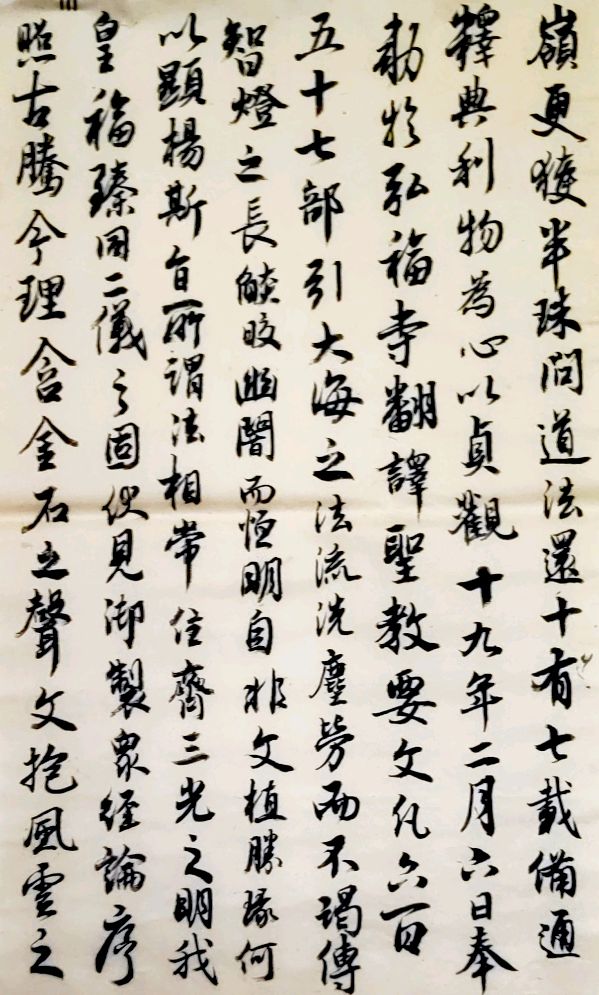 嶺更獲半珠問道法還十有七載備通
釋典利物為心以貞觀十九年二月六日奉
勑於弘福寺翻譯聖教要文凡六百
五十七部引大海之法流洗塵勞而不竭傳
智燈之長燄皎幽闇而恒明自非文植勝緣何
以顯楊斯旨所謂法相常住齊三光之明我
皇福臻同二儀之固伏見御製眾經論序
照古騰今理含金石之聲文抱風雲之